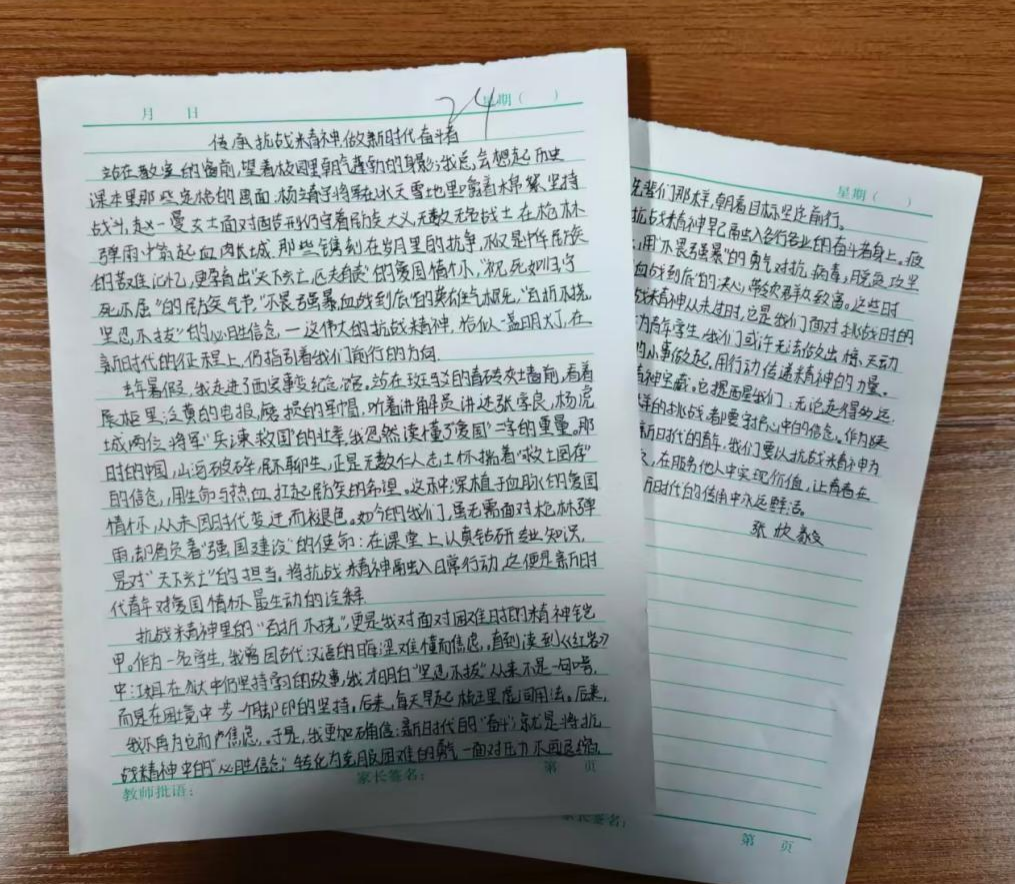 月 日 星期( )
24
传承抗战精神,做新时代奋斗者
站在教室的窗前,望着校园里朝气蓬勃的身影,我总会想起历史
课本里那些定格的画面:杨靖宇将军在冰天雪地里嚼着棉絮坚持
战斗,赵一曼女士面对酷刑仍守着民族大义,无数无名战士在枪林
弹雨中筑起血肉长城。那些镌刻在岁月里的抗争,不仅是中华民族
的苦难记忆,更孕育出“天下兴亡,匹夫有责”的爱国情怀,“视死如归,宁
死不屈”的民族气节,“不畏强暴,血战到底”的英雄气概,“百折不挠,
坚忍不拔”的必胜信念——这伟大的抗战精神,恰似一盏明灯,在
新时代的征程上,仍指引着我们前行的方向.
去年暑假,我走进了西安事变纪念馆,站在斑驳的青砖灰墙前,看着
展柜里泛黄的电报,磨损的军帽,听着讲解员讲述张学良、杨虎
城两位将军“兵谏救国”的壮举,我忽然读懂了“爱国”二字的重量。那
时的中国,山河破碎,民不聊生,正是无数仁人志士怀揣着“救亡图存”
的信念,用生命与热血扛起民族的希望。这种深植于血脉的爱国
情怀,从未因时代变迁而褪色。如今的我们,虽无需面对枪林弹
雨,却肩负着“强国建设”的使命:在课堂上认真钻研专业知识,
是对“天下兴亡”的担当,将抗战精神融入日常行动,这便是新时
代青年对爱国情怀最生动的诠释.
抗战精神里的“百折不挠”,更是我对面对困难时的精神铠
甲。作为一名学生,我曾因古代汉语的晦涩难懂而焦虑。直到读到《红岩》
中江姐在狱中仍坚持学习的故事,我才明白“坚忍不拔”从来不是一句口号,
而是在困境中一步一个脚印的坚持。后来,每天早起梳理虚词用法。后来,
我不再为它而焦虑,于是,我更加确信:新时代的“奋斗”,就是将抗
战精神中的“必胜信念”转化为克服困难的勇气——面对压力不再退缩,
教师批语: 家长签名: 第 页
星期(
先辈们那样,朝着目标坚定前行。
抗战精神早已融入各行各业的奋斗者身上。疫
,用“不畏强暴”的勇气对抗病毒,脱贫攻坚
血战到底”的决心,带领群众致富。这些时
战精神从未过时,它是我们面对挑战时的
为青年学生,我们或许无法做出惊天动
的小事做起,用行动传递精神的力量。
精神宝藏。它提醒着我们:无论走得多远
样的挑战,都要守护心中的信念。作为
新时代的青年,我们要以抗战精神为
,在服务他人中实现价值,让青春在
新时代的传承中永远鲜活。
张欣
家长签名:
第 页